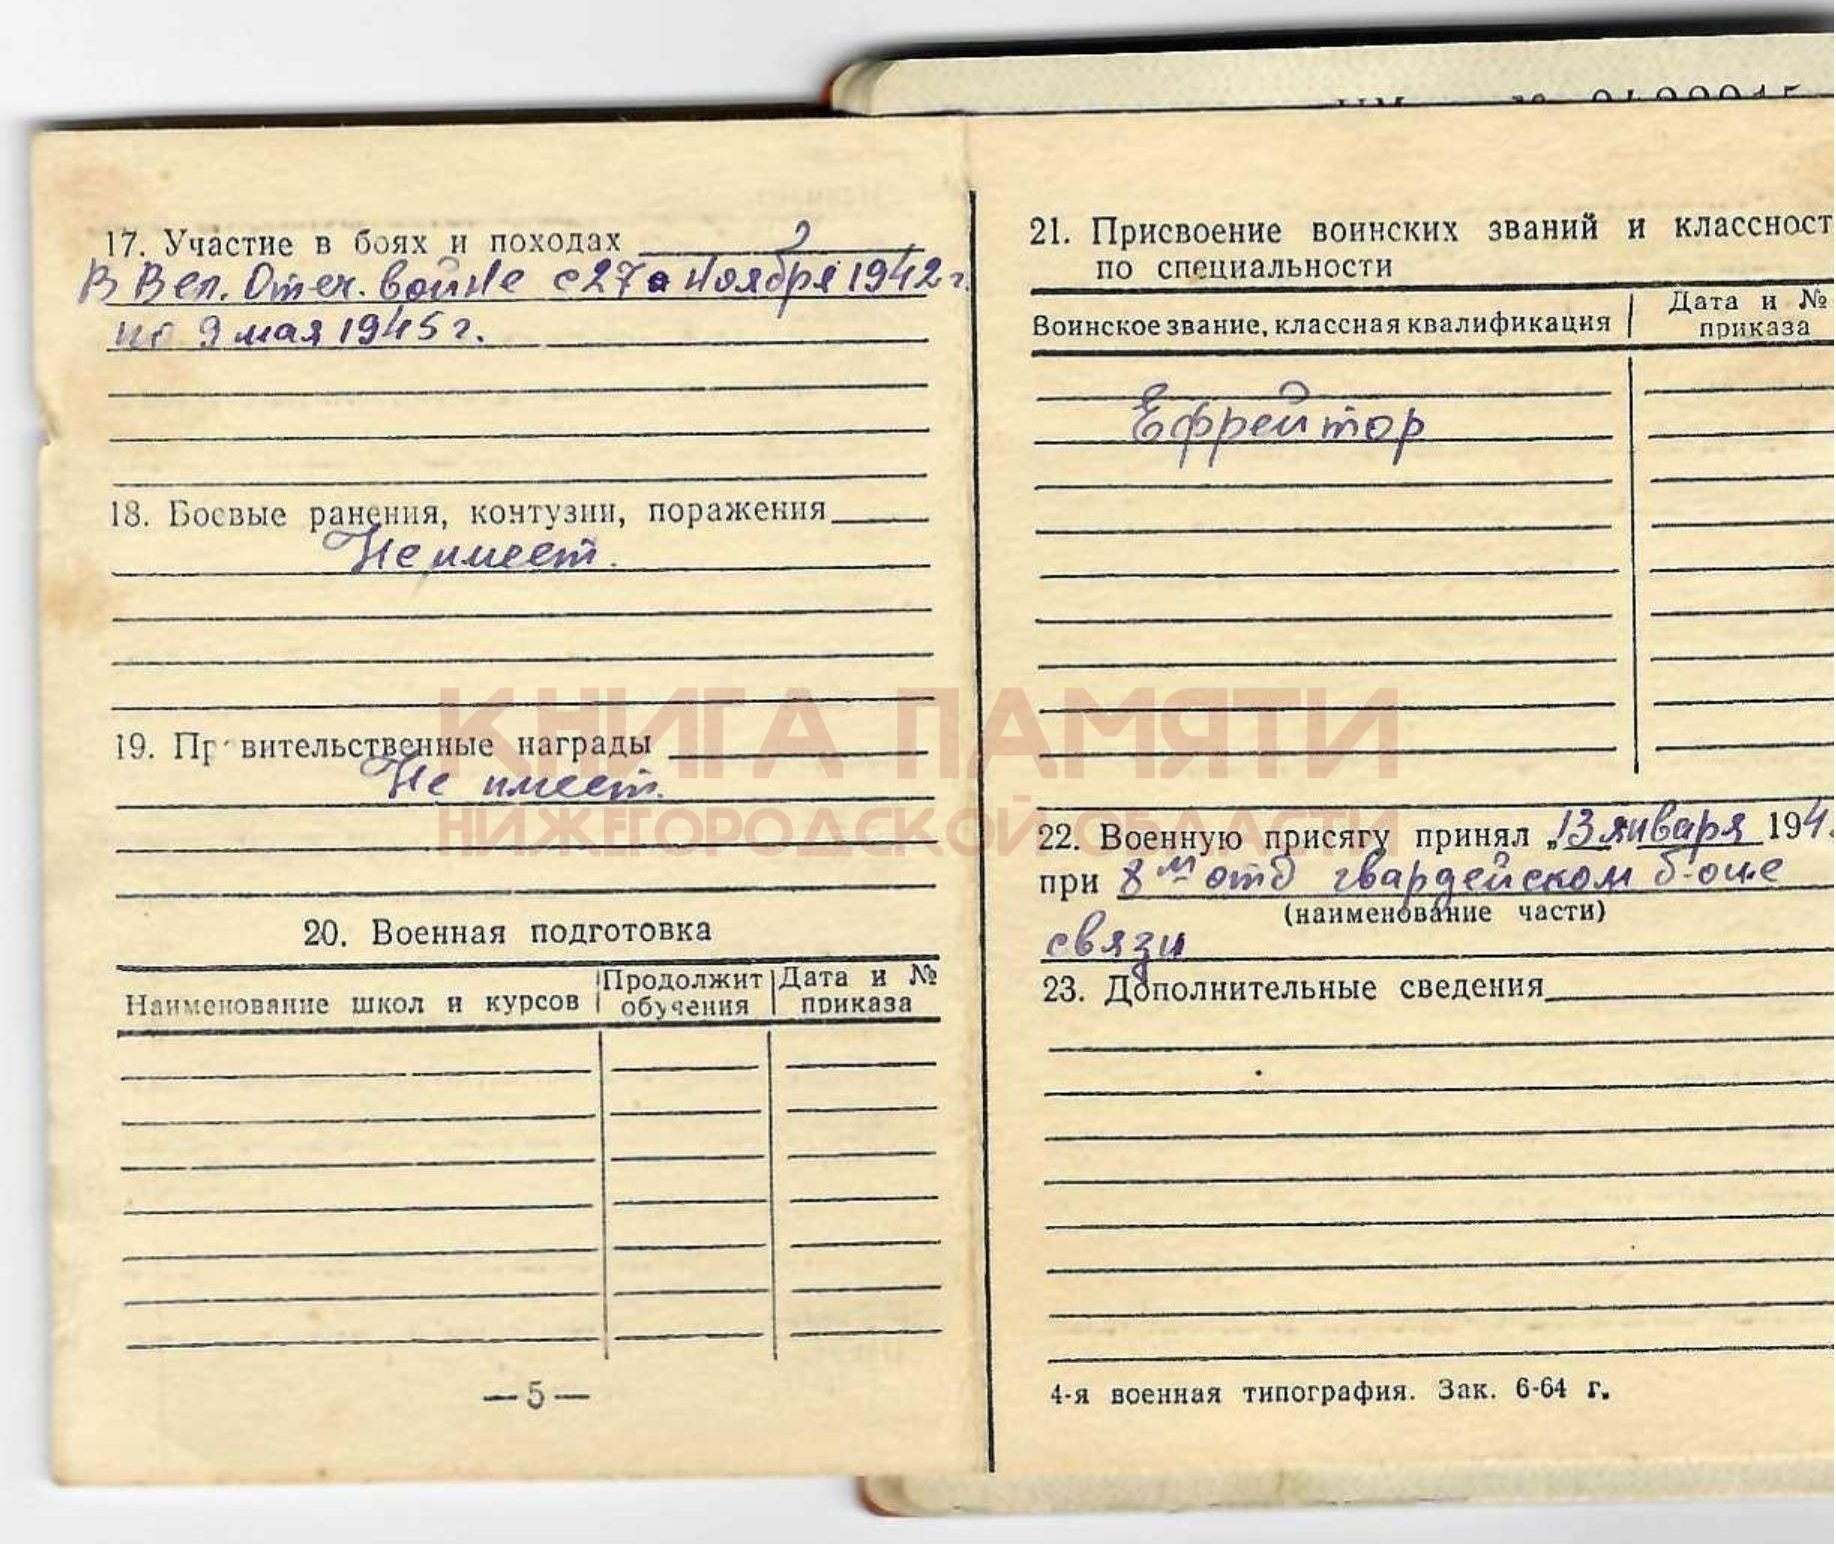 17. Участие в боях и походах
В Вел. Отеч. войне с 27 ноября 1942 г.
по 9 мая 1945 г.
18. Боевые ранения, контузии, поражения
Не имеет.
19. Правительственные награды
Не имеет.
20. Военная подготовка
Наименование школ и курсов
Продолжит обучения
Дата и № приказа
— 5 —
21. Присвоение воинских званий и классност
по специальности
Воинское звание, классная квалификация
Дата и №
приказа
Ефрейтор
22. Военную присягу принял „13 января 194
при 8м отд гвардейском б-оне
(наименование части)
связи
23. Дополнительные сведения
4-я военная типография. Зак. 6-64 г.
КНИГА ПАМЯТИ
НИЖЕГОРОДСКОЙ ОБЛАСТИ